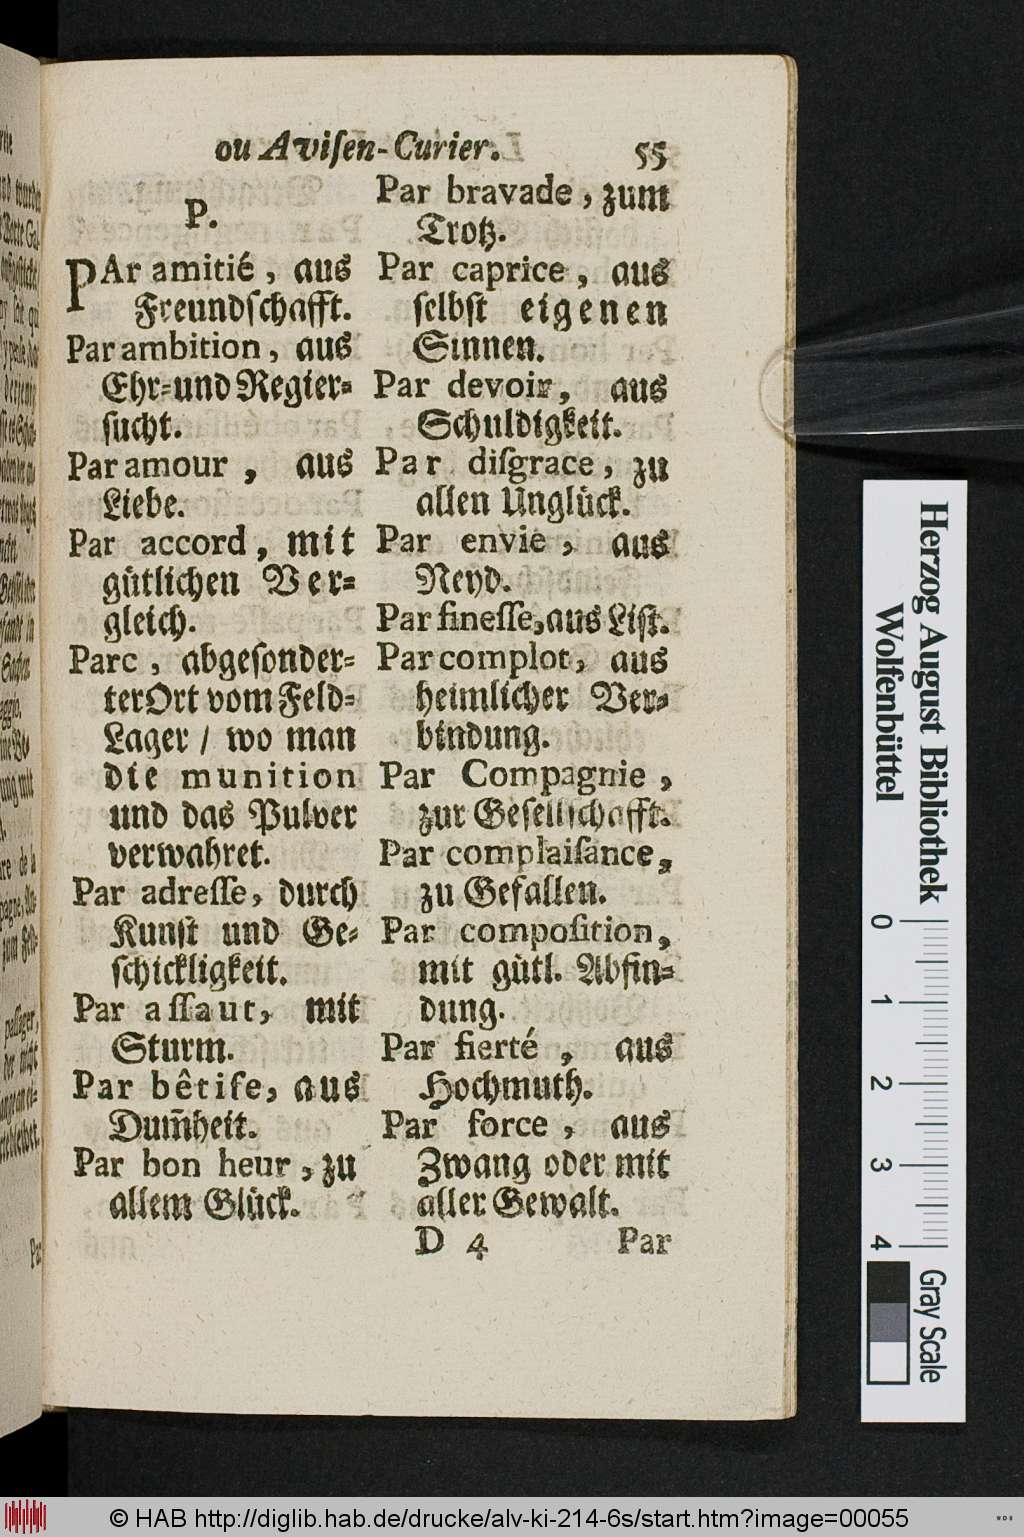 ou Aviſen-Curier. 55
P.
PAr amitié, aus
Freundſchafft.
Par ambition, aus
Ehr- und Regier-
ſucht.
Par amour, aus
Liebe.
Par accord, mit
gütlichen Ver-
gleich.
Parc, abgeſonder-
ter Ort vom Feld-
Lager / wo man
die munition
und das Pulver
verwahret.
Par adreſſe, durch
Kunſt und Ge-
ſchickligkeit.
Par aſſaut, mit
Sturm.
Par bêtiſe, aus
Dum̃heit.
Par bon heur, zu
allem Glück.
Par bravade, zum
Trotz.
Par caprice, aus
ſelbſt eigenen
Sinnen.
Par devoir, aus
Schuldigkeit.
Par diſgrace, zu
allen Unglück.
Par envie, aus
Neyd.
Par fineſſe, aus Liſt.
Par complot, aus
heimlicher Ver-
bindung.
Par Compagnie,
zur Geſellſchafft.
Par complaiſance,
zu Gefallen.
Par compoſition,
mit gütl. Abfin-
dung.
Par fierté, aus
Hochmuth.
Par force, aus
Zwang oder mit
aller Gewalt.
D 4 Par
Herzog August Bibliothek
Wolfenbüttel
0 1 2 3 4
Gray Scale
© HAB http://diglib.hab.de/drucke/alv-ki-214-6s/start.htm?image=00055